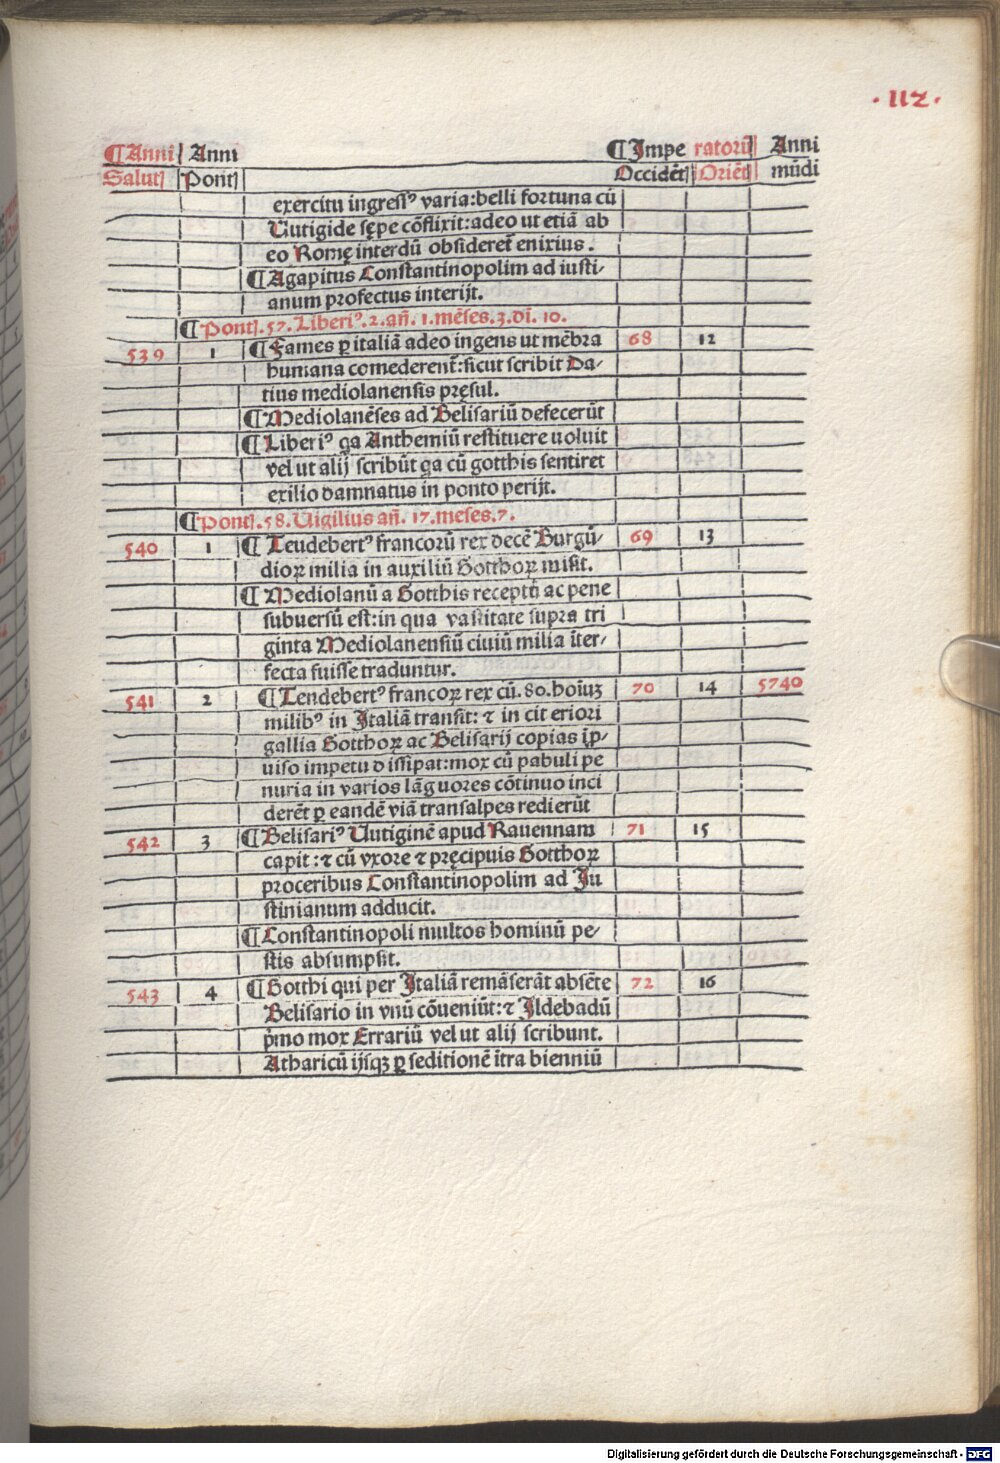 ·112·
¶Anni Anni ¶Impe ratorū Anni
Salutꝭ Pontꝭ Occidēt Oriēt mūdi
exercitu ingressꝰ varia:belli fortuna cū
Uutigide sępe cōflixit:adeo ut etiā ab
eo Romę interdū obsideret enixius.
¶Agapitus Constantinopolim ad iusti-
anum profectus interijt.
¶Pontꝭ.57.Liberiꝰ.2.añ.1.mēses.3.di.10.
539 1 ¶Fames ꝑ italiā adeo ingens ut mēbra 68 12
humana comederent:sicut scribit Da-
tius mediolanensis pręsul.
¶Mediolanēses ad Belisariū defecerūt
¶Liberiꝰ qa Anthemiū restituere uoluit
vel ut alij scribūt qa cū gotthis sentiret
exilio damnatus in ponto perijt.
¶Pontꝭ.58.Uigilius añ.17.meses.7.
540 1 ¶Teudebertꝰ francorū rex decē Burgū- 69 13
dioꝝ milia in auxiliū Gotthoꝝ misit.
¶Mediolanū a Gotthis receptū ac pene
subuersū est:in qua vastitate supra tri
ginta Mediolanensiū ciuiū milia īter-
fecta fuisse traduntur.
541 2 ¶Tendebertꝰ francoꝝ rex cū.80.hoīuꝫ 70 14 5740
milibꝰ in Italiā transit: ⁊ in cit eriori
gallia Gotthoꝝ ac Belisarij copias īp-
uiso impetu dissipat:mox cū pabuli pe
nuria in varios lāguores cōtinuo inci
derēt ꝑ eandē viā transalpes redierūt
542 3 ¶Belisariꝰ Uutiginē apud Rauennam 71 15
capit:⁊ cū vxore ⁊ pręcipuis Gotthoꝝ
proceribus Constantinopolim ad Ju
stinianum adducit.
¶Constantinopoli multos hominū pe-
stis absumpsit.
543 4 ¶Gotthi qui per Italiā remāserāt absēte 72 16
Belisario in vnū cōueniūt:⁊ Ildebadū
pͥmo mox Errariū vel ut alij scribunt.
Atharicū ijsqꝫ ꝑ seditionē ītra bienniū
Digitalisierung gefördert durch die Deutsche Forschungsgemeinschaft - DFG